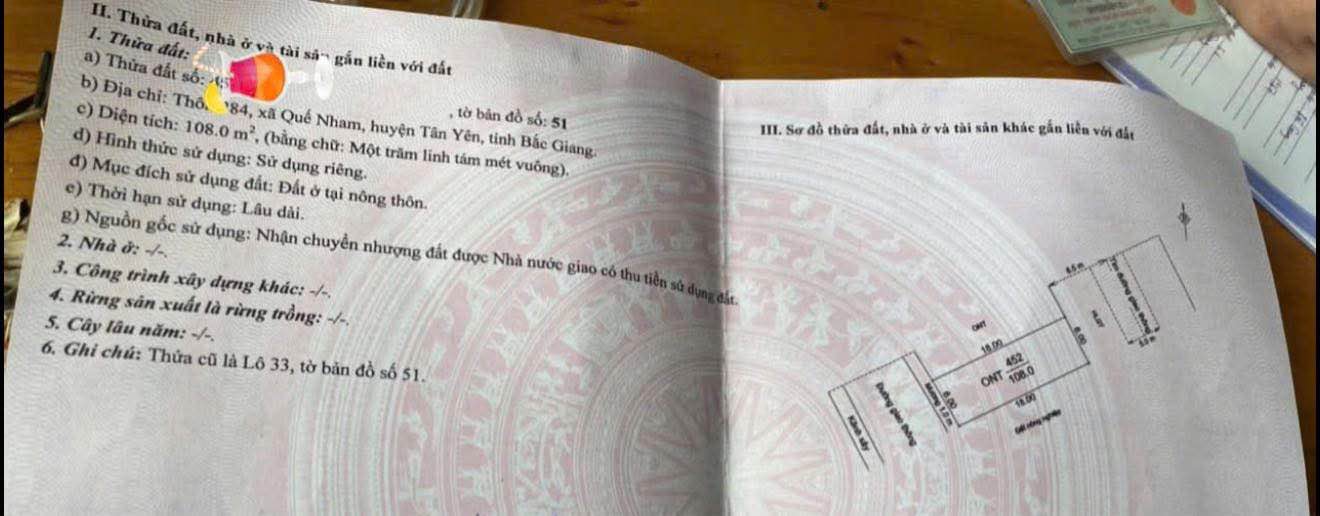 II. Thửa đất, nhà ở và tài sản gắn liền với đất
1. Thửa đất:
a) Thửa đất số: , tờ bản đồ số: 51
b) Địa chỉ: 284, xã Quế Nham, huyện Tân Yên, tỉnh Bắc Giang.
c) Diện tích: 108.0 m², (bằng chữ: Một trăm linh tám mét vuông).
d) Hình thức sử dụng: Sử dụng riêng.
đ) Mục đích sử dụng đất: Đất ở tại nông thôn.
e) Thời hạn sử dụng: Lâu dài.
g) Nguồn gốc sử dụng: Nhận chuyển nhượng đất được Nhà nước giao có thu tiền sử dụng đất.
2. Nhà ở: -/-.
3. Công trình xây dựng khác: -/-.
4. Rừng sản xuất là rừng trồng: -/-.
5. Cây lâu năm: -/-.
6. Ghi chú: Thửa cũ là Lô 33, tờ bản đồ số 51.
III. Sơ đồ thửa đất, nhà ở và tài sản khác gắn liền với đất
6.5 m
Tim đường giao thông
5.0 m
HLGT
ONT
18.00
6.00
ONT 452
108.0
6.00
18.00
Mương 1.0 m
Đất nông nghiệp
Đường giao thông
Kênh xây